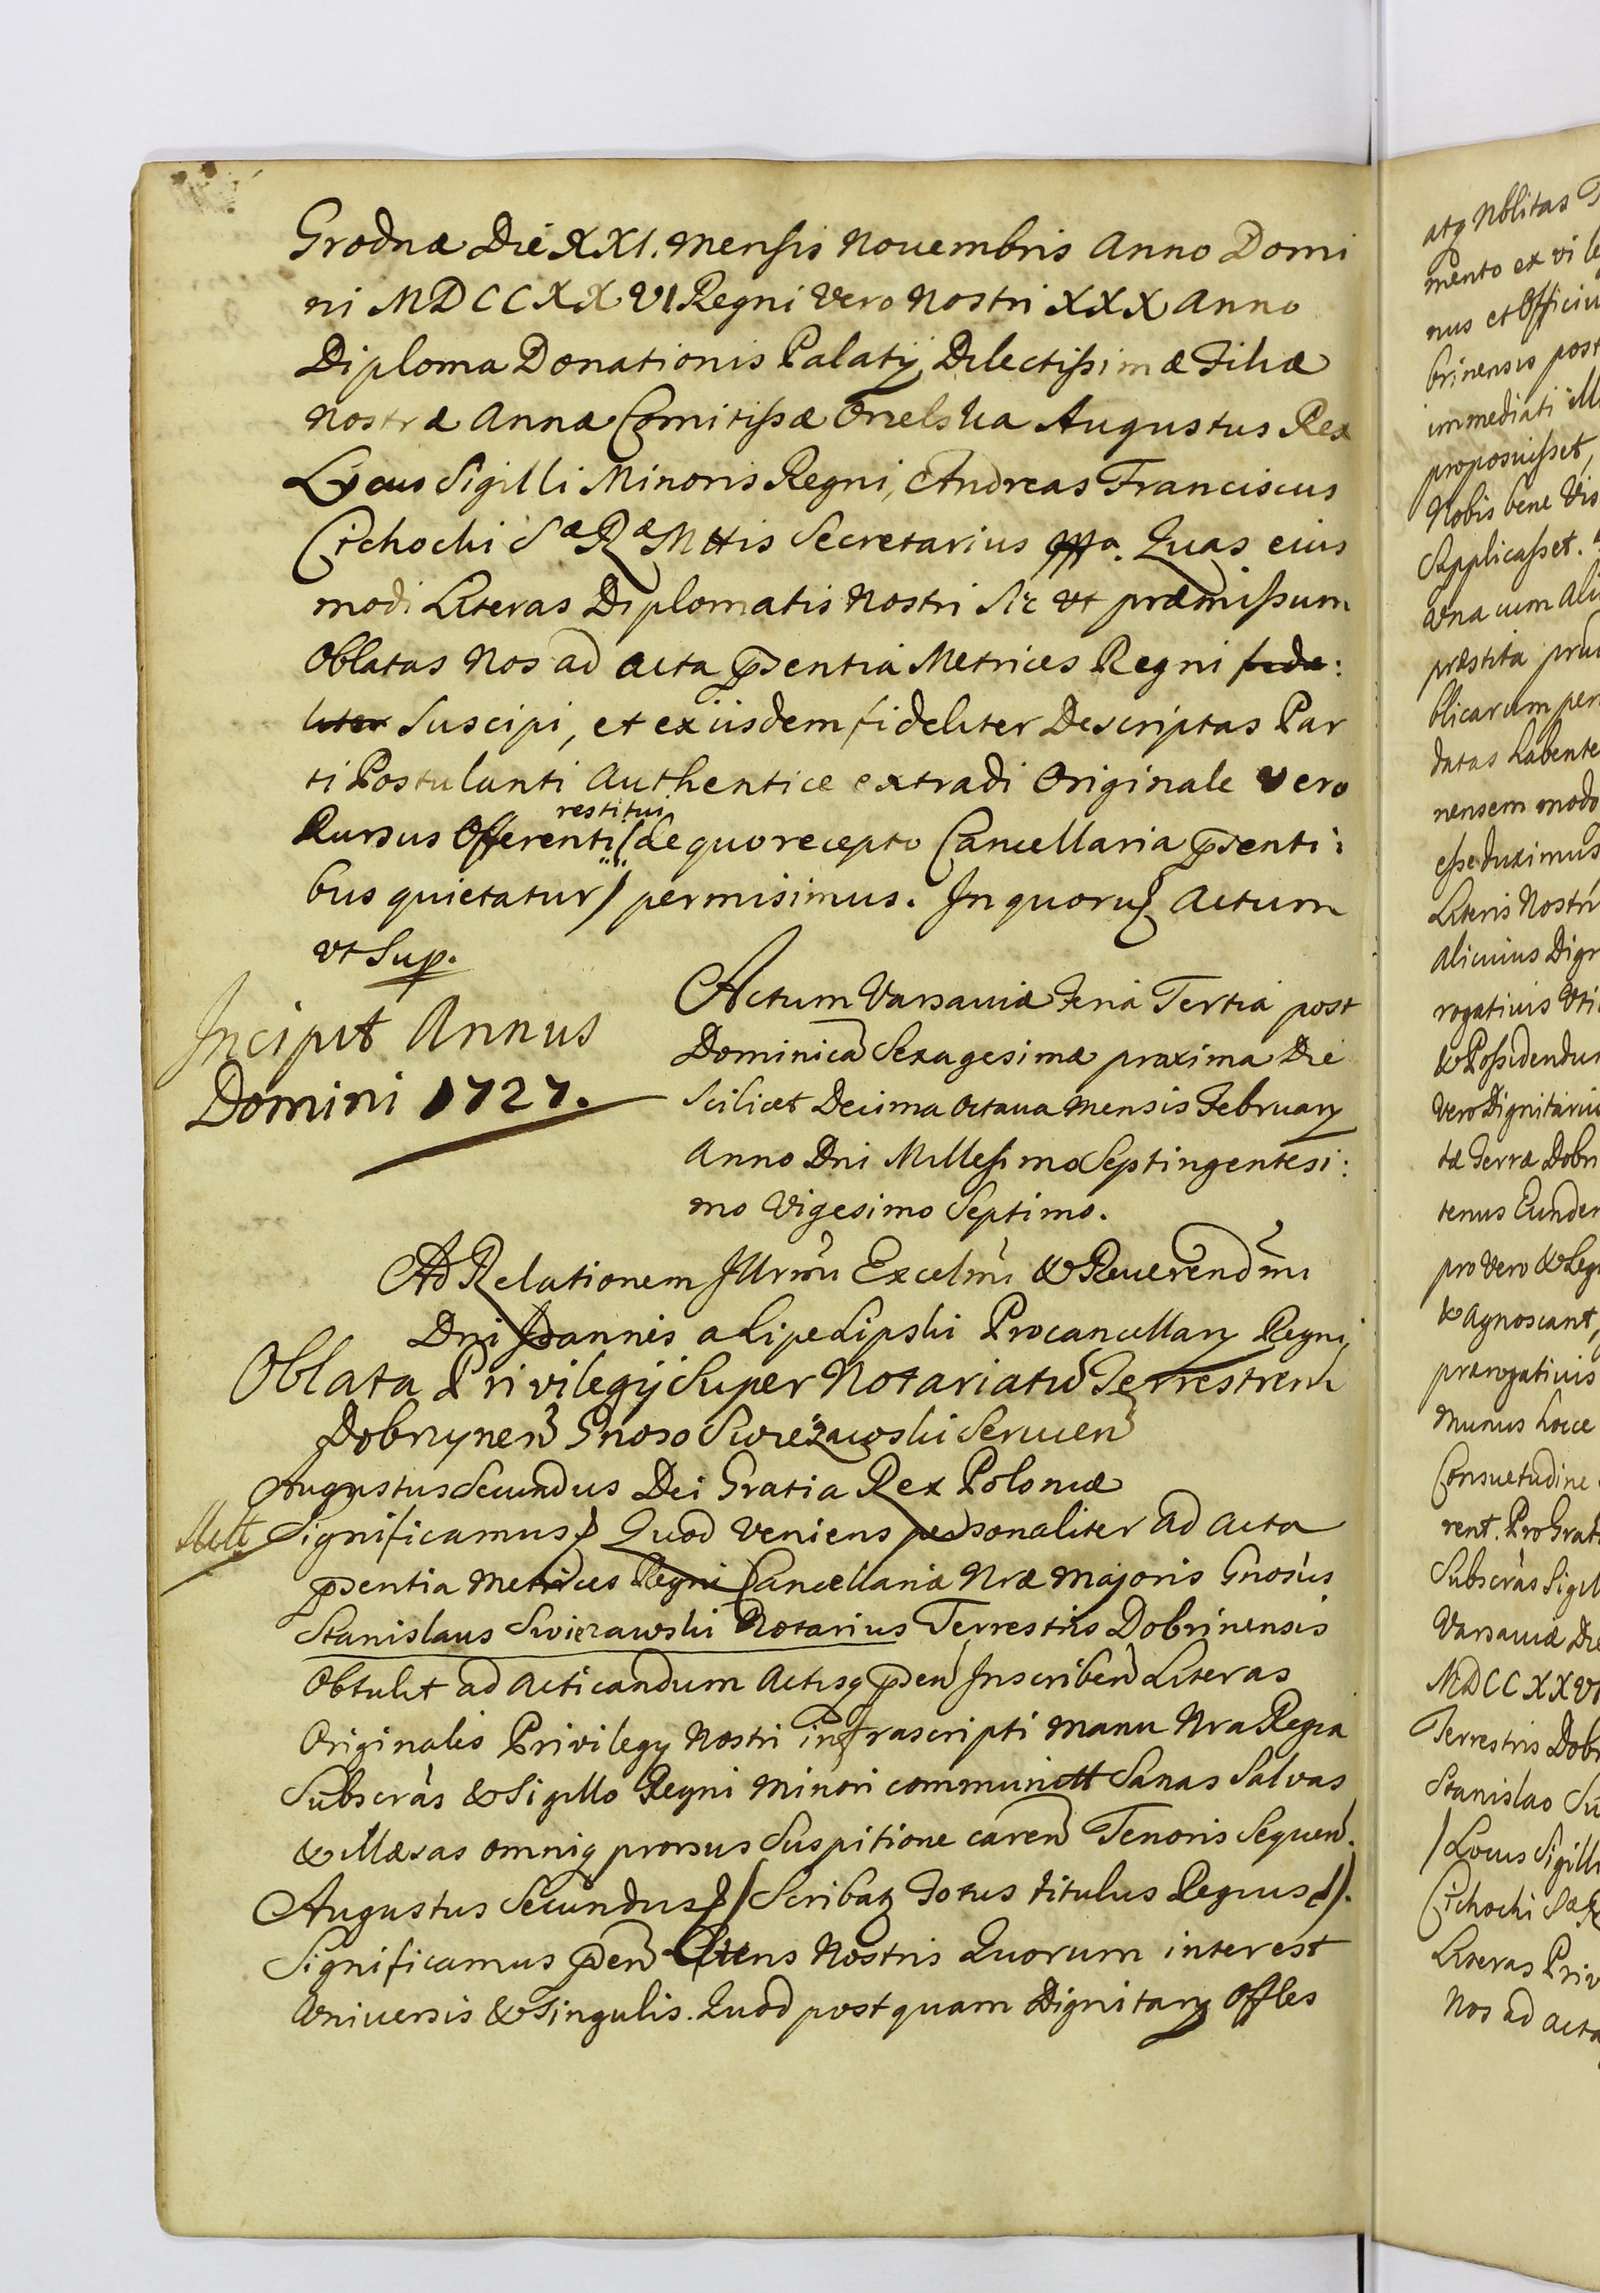 Grodnæ Die XXI. Mensis Nouembris Anno Domi
ni MDCCXXVI Regni Vero Nostri XXX Anno
Diploma Donationis Palatij Dilectissimæ Filiæ
Nostræ Annæ Comitissæ Orzelska Augustus Rex
Locus Sigilli Minoris Regni, Andreas Franciscus
Cichocki Sæ Ræ Mttis Secretarius mp. Quas eius
modi Literas Diplomatis Nostri Sic ut præmissum
Oblatas Nos ad Acta pñsentia Metrices Regni fide:
liter Suscipi, et ex iisdem fideliter Descriptas Par
ti Postulanti Authentice extradi Originale Vero
restitui
Rursus Offerenti (de quo recepto Cancellaria pñsenti:
bus quietatur) permisimus. In quorum Actum
vt Sup.
Incipit Annus
Domini 1727.
Actum Varsauiæ Feria Tertia post
Dominicã Sexagesimæ proxima Die
Scilicet Decima Octaua Mensis February
Anno Dni Millesimo Septingentesi:
mo Vigesimo Septimo.
Ad Relationem Illrmi Excelmi & Reuerendmi
Dni Joannis a Lipe Lipski Procancellary Regni
Oblata Privilegij Super Notariatũ Terrestrem
Dobrzyneñ Gnoso Swiezawski Seruieñ
Augustus Secundus Dei Gratia Rex Poloniæ
Significamus Quod Veniens personaliter ad Acta
pñsentia Metrices Regni Cancellariæ Nræ Majoris Gnosus
Stanislaus Swierzawski Notarius Terrestris Dobrinensis
Obtulit ad Acticandum Actisq pñseñ Inscribeñ Literas
Originales Privilegy Nostri infrascripti Manu Nra Regia
Subscras & Sigillo Regni Minori communitt Sanas Salvas
& Illæsas omniq prorsus Suspitione careñ Tenoris Sequeñ.
Augustus Secundus (Scribatr Totus titulus Regius).
Significamus pñseñ Literis Nostris Quorum interest
Vniuersis & Singulis. Quod postquam Dignitary Offles
atq Nblitas
mento ex vi
nus et Officiu
brinensis post
immediati
proposuisset,
Nobis bene Vis
Supplicasset.
vna cum Ali
præstita
blicarum per
datas habente
nensem modo
esse duximus
Literis Nostri
alicuius Dig
rogativis Vti
& Possidendu
Vero Dignitariu
tæ Terræ Dobri
tenus Eunde
pro Vero & Leg
& Agnoscant,
prærogativis
Munus hocce
Consuetudine
rent. Pro Grat
Subscras Sigil
Varsauiæ Die
MDCCXXVI
Terrestris Dob
Stanislao Su
(Locus Sigilli
Cichocki Sæ R
Literas Priv
Nos ad acta